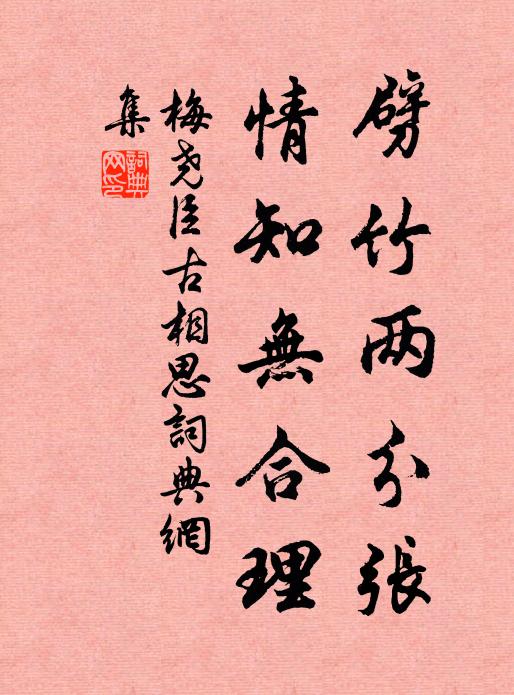 劈竹两分張
情知無合理
梅尧臣古相思詞典網
集
詞典网印